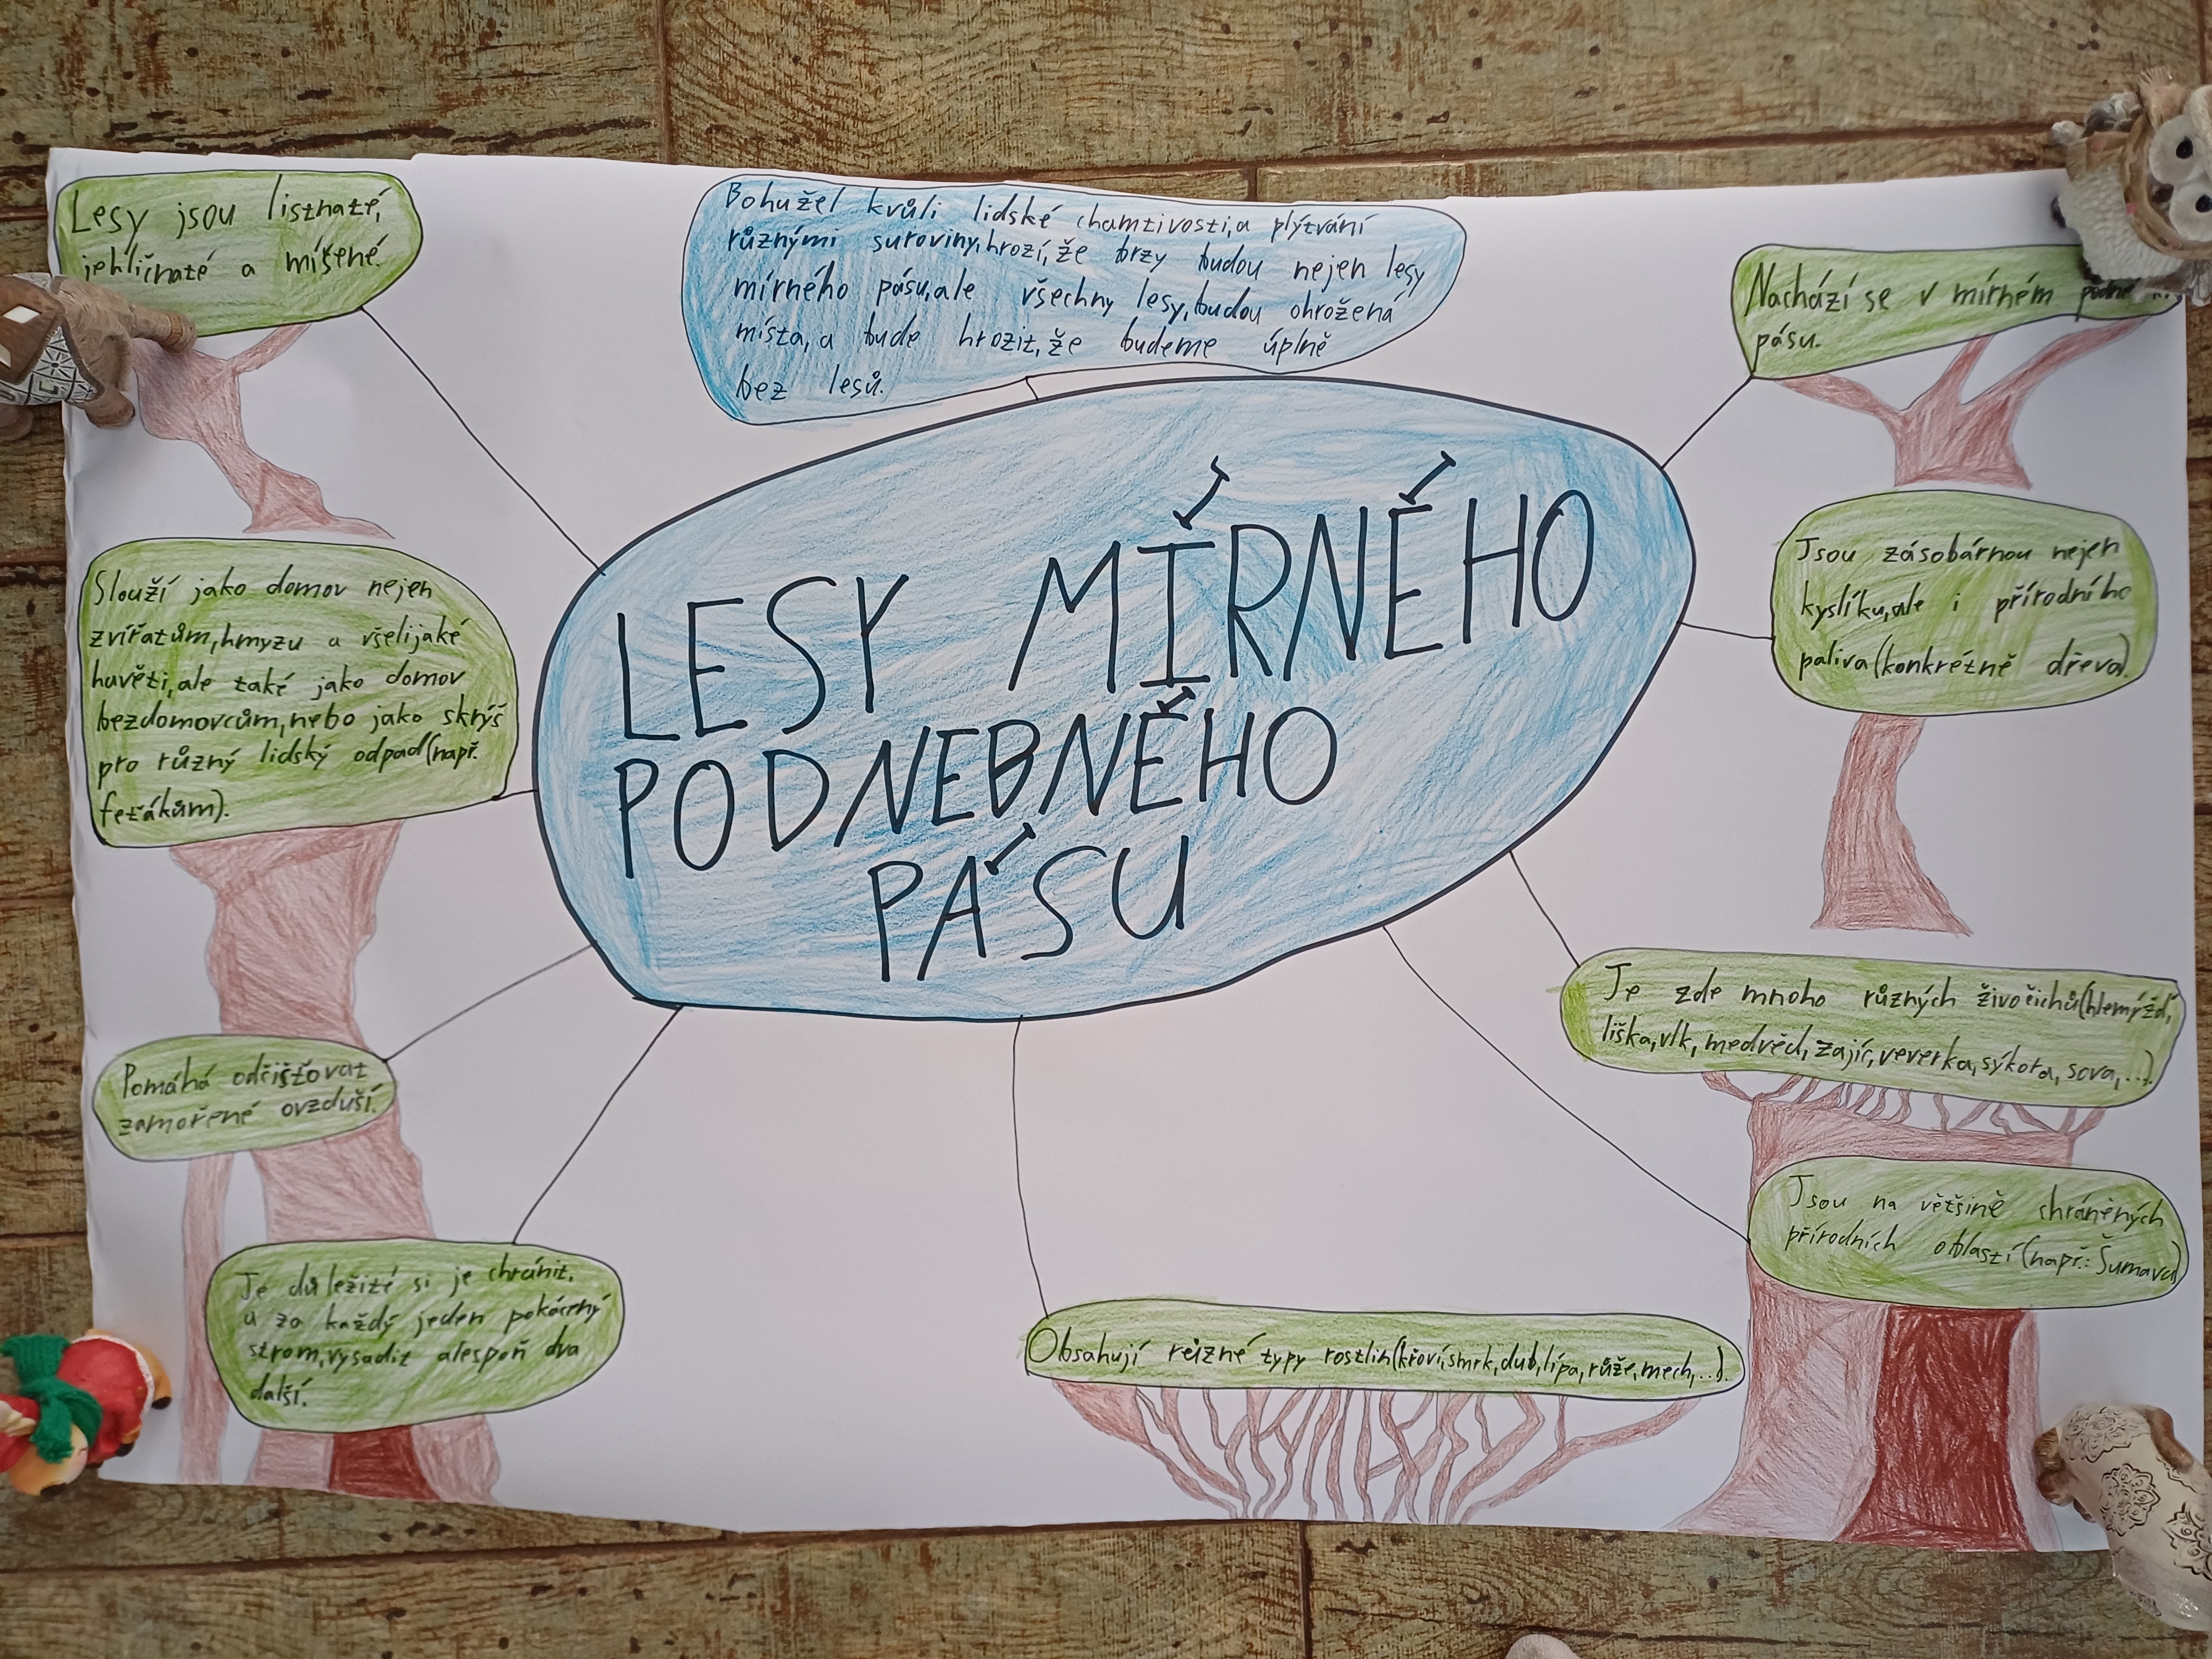 Lesy jsou listnaté,
jehličnaté a míšené.
Bohužel kvůli lidské chamtivosti,a plýtvání
různými suroviny,hrozí,že brzy budou nejen lesy
mírného pásu,ale všechny lesy,budou ohrožená
místa,a bude hrozit,že budeme úplně
bez lesů.
Nachází se v mírném
pásu.
LESY MÍRNÉHO
PODNEBNÉHO
PÁSU
Slouží jako domov nejen
zvířatům,hmyzu a všelijaké
havěti,ale také jako domov
bezdomovcům,nebo jako skrýš
pro různý lidský odpad(např.
feťákům).
Jsou zásobárnou nejen
kyslíku,ale i přírodního
paliva(konkrétně dřeva).
Pomáhá odčišťovat
zamořené ovzduší.
Je zde mnoho různých živočichů(hlemýžď,
liška,vlk,medvěd,zajíc,veverka,sýkora,sova,...).
Jsou na většině chráněných
přírodních oblastí(např.: Šumava)
Je důležité si je chránit,
a za každý jeden pokácený
strom,vysadit alespoň dva
další.
Obsahují různé typy rostlin(křoví,smrk,dub,lípa,růže,mech,...).